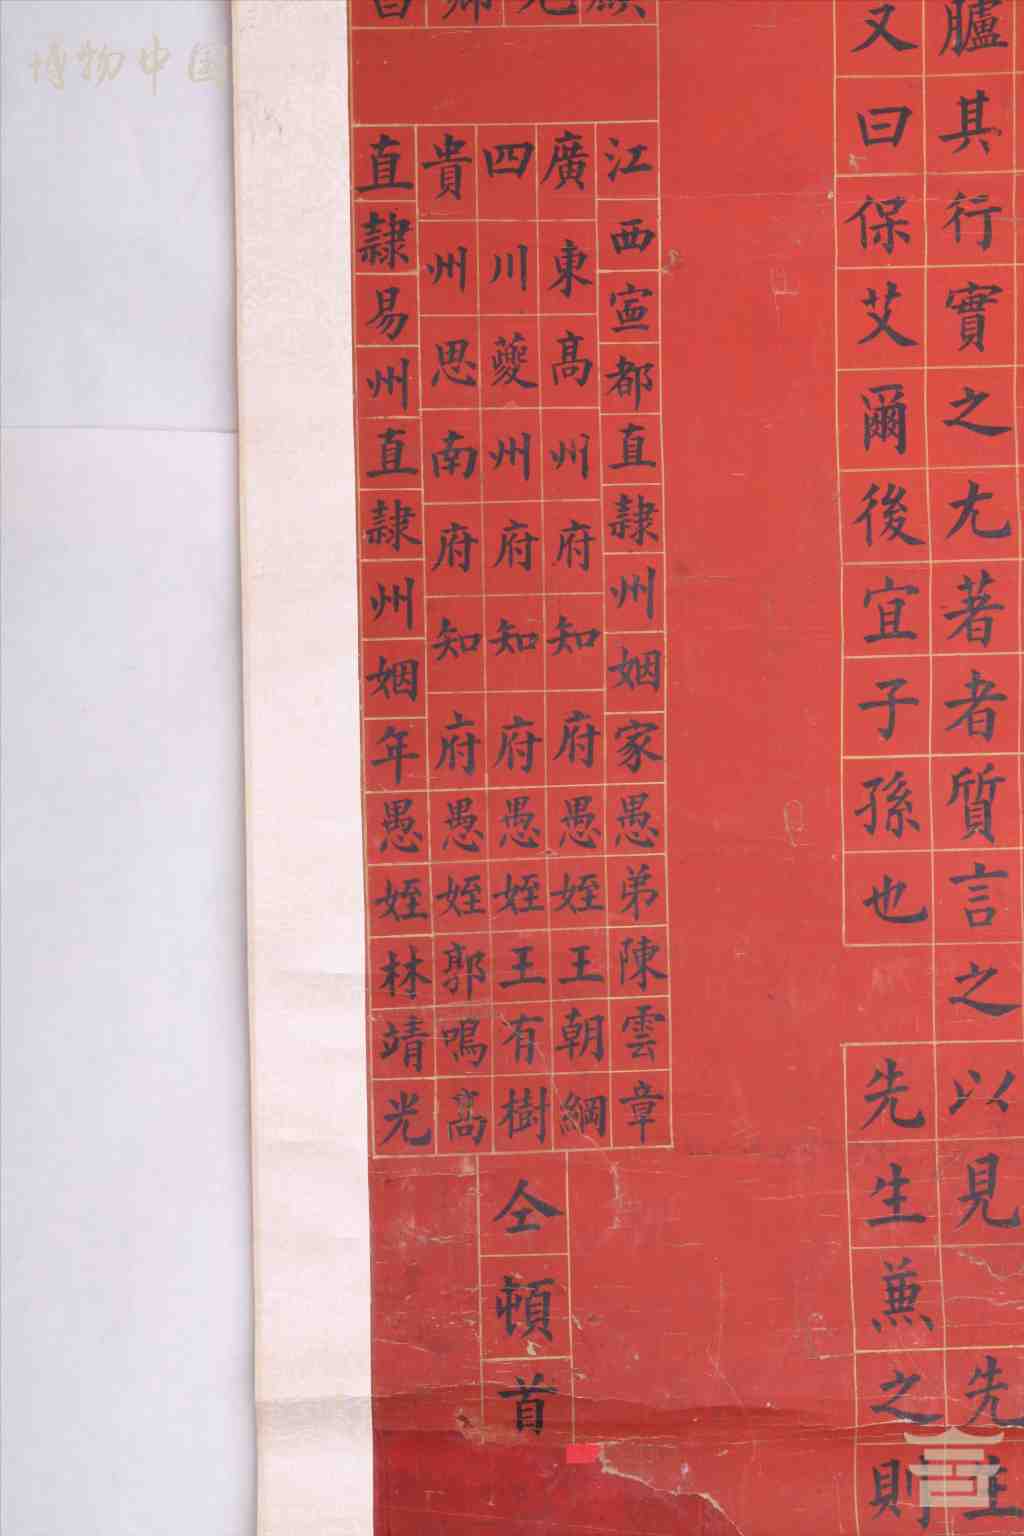 臚其行實之尤著者質言之以見先生
又曰保艾爾後宜子孫也先生兼之則
江西寧都直隷州姻家愚弟陳雲章
廣東高州府知府愚姪王朝綱
四川夔州府知府愚姪王有樹
貴州思南府知府愚姪郭鳴高
直隷易州直隷州姻年愚姪林靖光
仝頓首
博物中国